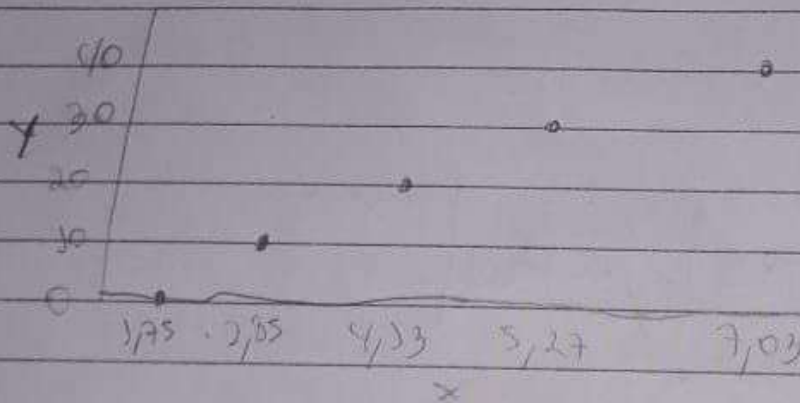 40
Y 30
20
10
0
1,75 2,85 4,13 5,27 7,03
x